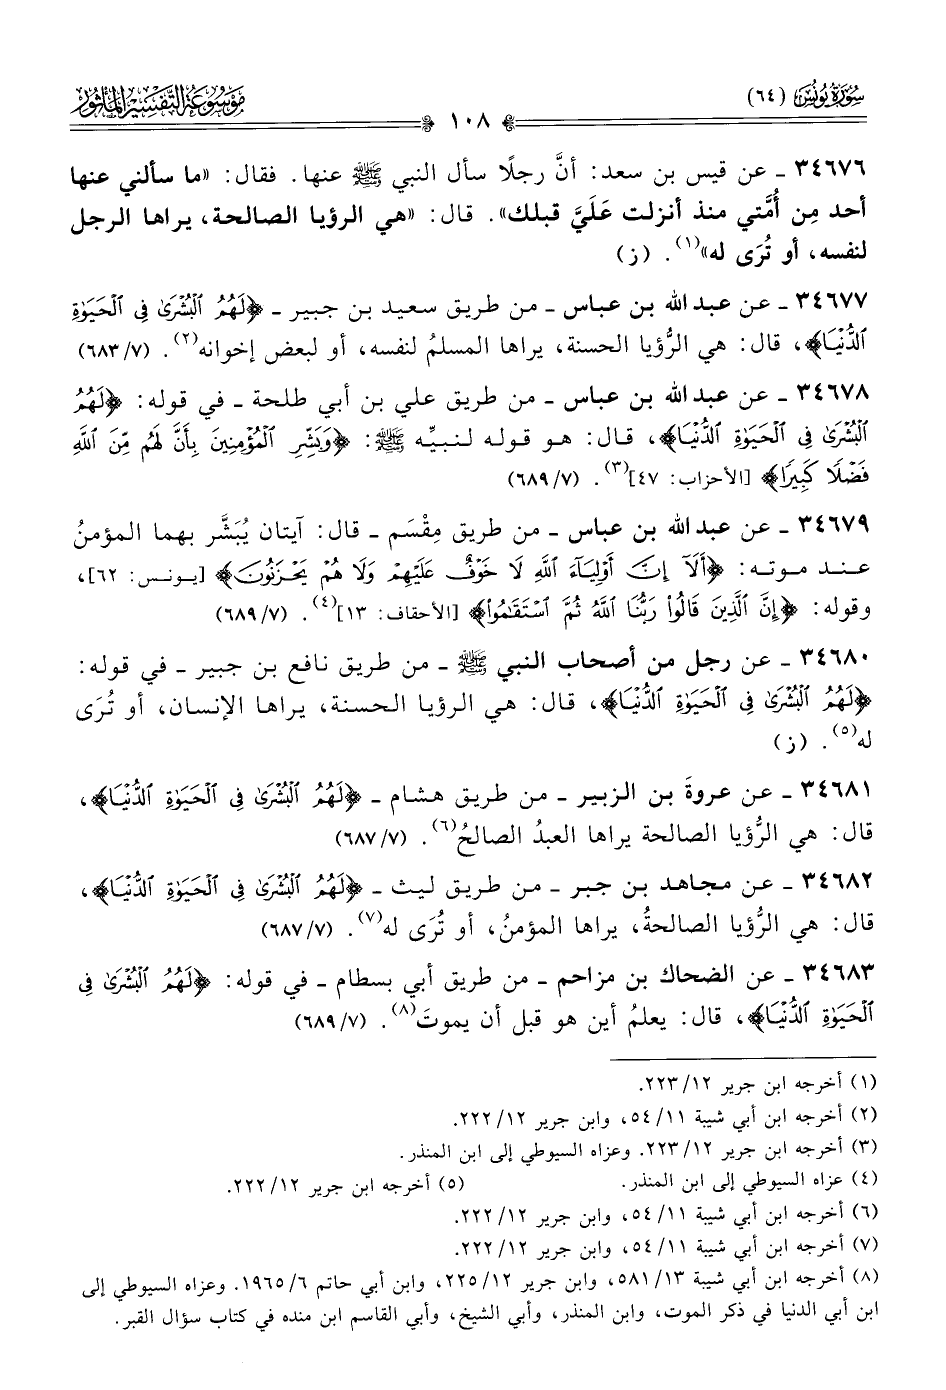 سُورَةُ يُونُسَ (٦٤)
موسوعة التفسير المأثور
١٠٨
٣٤٦٧٦ ـ عن قيس بن سعد: أنَّ رجلًا سأل النبي ﷺ عنها. فقال: «ما سألني عنها
أحد مِن أُمَّتي منذ أنزلت عَلَيَّ قبلك». قال: «هي الرؤيا الصالحة، يراها الرجل
لنفسه، أو تُرَى له»(١). (ز)
٣٤٦٧٧ ـ عن عبد الله بن عباس ـ من طريق سعيد بن جبير ـ ﴿لَهُمُ ٱلْبُشْرَىٰ فِى ٱلْحَيَوٰةِ
ٱلدُّنْيَا﴾، قال: هي الرُّؤيا الحسنة، يراها المسلمُ لنفسه، أو لبعض إخوانه(٢). (٧/ ٦٨٣)
٣٤٦٧٨ ـ عن عبد الله بن عباس ـ من طريق علي بن أبي طلحة ـ في قوله: ﴿لَهُمُ
ٱلْبُشْرَىٰ فِى ٱلْحَيَوٰةِ ٱلدُّنْيَا﴾، قال: هو قوله لنبيِّه ﷺ: ﴿وَبَشِّرِ ٱلْمُؤْمِنِينَ بِأَنَّ لَهُم مِّنَ ٱللَّهِ
فَضْلًا كَبِيرًا﴾ [الأحزاب: ٤٧](٣). (٧/ ٦٨٩)
٣٤٦٧٩ ـ عن عبد الله بن عباس ـ من طريق مِقْسَم ـ قال: آيتان يُبَشَّر بهما المؤمنُ
عند موته: ﴿أَلَآ إِنَّ أَوْلِيَآءَ ٱللَّهِ لَا خَوْفٌ عَلَيْهِمْ وَلَا هُمْ يَحْزَنُونَ﴾ [يونس: ٦٢]،
وقوله: ﴿إِنَّ ٱلَّذِينَ قَالُوا۟ رَبُّنَا ٱللَّهُ ثُمَّ ٱسْتَقَـٰمُوا۟﴾ [الأحقاف: ١٣](٤). (٧/ ٦٨٩)
٣٤٦٨٠ ـ عن رجل من أصحاب النبي ﷺ ـ من طريق نافع بن جبير ـ في قوله:
﴿لَهُمُ ٱلْبُشْرَىٰ فِى ٱلْحَيَوٰةِ ٱلدُّنْيَا﴾، قال: هي الرؤيا الحسنة، يراها الإنسان، أو تُرَى
له(٥). (ز)
٣٤٦٨١ ـ عن عروةَ بن الزبير ـ من طريق هشام ـ ﴿لَهُمُ ٱلْبُشْرَىٰ فِى ٱلْحَيَوٰةِ ٱلدُّنْيَا﴾،
قال: هي الرُّؤيا الصالحة يراها العبدُ الصالحُ(٦). (٧/ ٦٨٧)
٣٤٦٨٢ ـ عن مجاهد بن جبر ـ من طريق ليث ـ ﴿لَهُمُ ٱلْبُشْرَىٰ فِى ٱلْحَيَوٰةِ ٱلدُّنْيَا﴾،
قال: هي الرُّؤيا الصالحةُ، يراها المؤمنُ، أو تُرَى له(٧). (٧/ ٦٨٧)
٣٤٦٨٣ ـ عن الضحاك بن مزاحم ـ من طريق أبي بسطام ـ في قوله: ﴿لَهُمُ ٱلْبُشْرَىٰ فِى
ٱلْحَيَوٰةِ ٱلدُّنْيَا﴾، قال: يعلمُ أين هو قبل أن يموتَ(٨). (٧/ ٦٨٩)
(١) أخرجه ابن جرير ١٢/ ٢٢٣.
(٢) أخرجه ابن أبي شيبة ١١/ ٥٤، وابن جرير ١٢/ ٢٢٢.
(٣) أخرجه ابن جرير ١٢/ ٢٢٣. وعزاه السيوطي إلى ابن المنذر.
(٤) عزاه السيوطي إلى ابن المنذر. (٥) أخرجه ابن جرير ١٢/ ٢٢٢.
(٦) أخرجه ابن أبي شيبة ١١/ ٥٤، وابن جرير ١٢/ ٢٢٢.
(٧) أخرجه ابن أبي شيبة ١١/ ٥٤، وابن جرير ١٢/ ٢٢٢.
(٨) أخرجه ابن أبي شيبة ١٣/ ٥٨١، وابن جرير ١٢/ ٢٢٥، وابن أبي حاتم ٦/ ١٩٦٥. وعزاه السيوطي إلى
ابن أبي الدنيا في ذكر الموت، وابن المنذر، وأبي الشيخ، وأبي القاسم ابن منده في كتاب سؤال القبر.